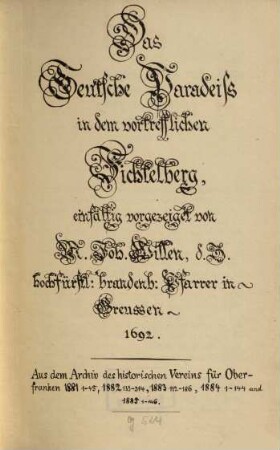 Das
Teutsche Paradeiss
in dem vortrefflichen
Fichtelberg,
einfältig vorgezeiget von
M. Joh. Willen, d. Z.
hochfürstl: brandenb: Pfarrer in
Creussen
1692.
Aus dem Archiv des historischen Vereins für Ober-
franken 1881 1-45, 1882 133-214, 1883 112-186, 1884 1-144 und
1885 1-106.